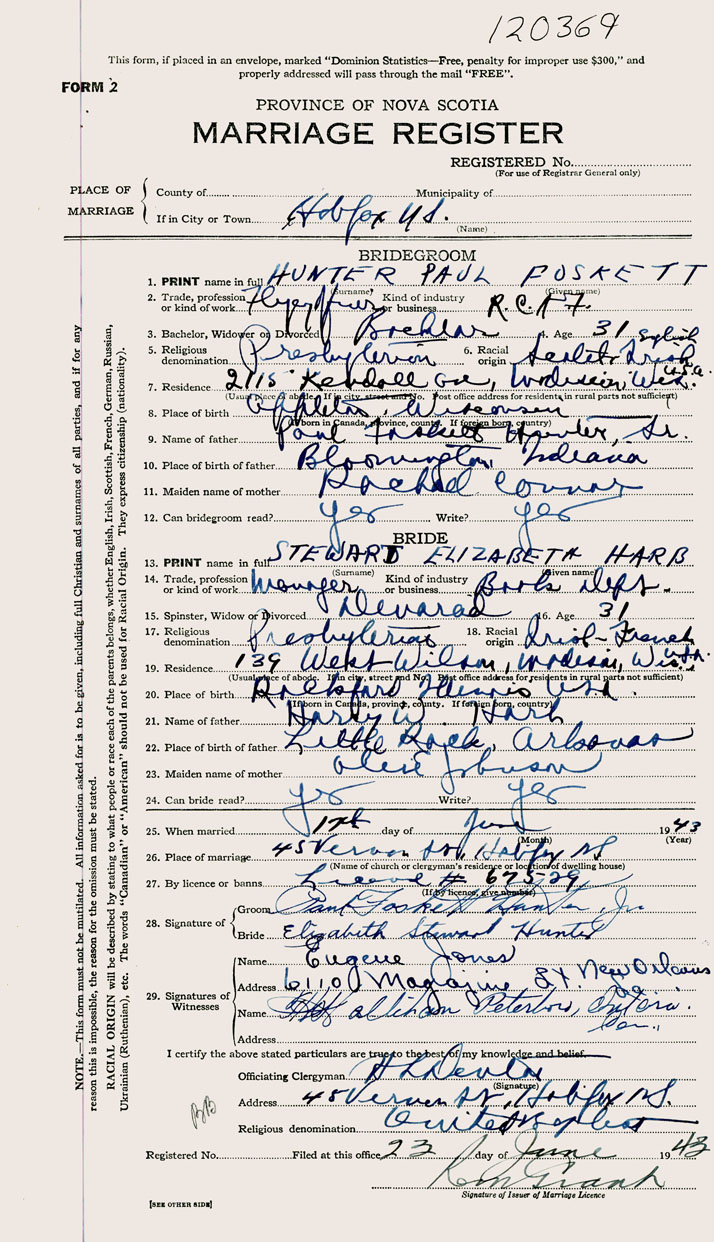 120369
This form, if placed in an envelope, marked "Dominion Statistics—Free, penalty for improper use $300," and
properly addressed will pass through the mail "FREE".
FORM 2
PROVINCE OF NOVA SCOTIA
MARRIAGE REGISTER
REGISTERED No.
(For use of Registrar General only)
PLACE OF MARRIAGE
County of Municipality of
If in City or Town Halifax N.S.
(Name)
BRIDEGROOM
1. PRINT name in full HUNTER PAUL FOSKETT
(Surname) (Given name)
2. Trade, profession or kind of work Kind of industry or business R.C.A.F.
3. Bachelor, Widower or Divorced Bachelor 4. Age 31
5. Religious denomination Presbyterian 6. Racial origin English Scotch Irish
7. Residence 2115 Kendall Ave, Madison, Wis. U.S.A.
(Usual place of abode. If in city, street and No. Post office address for residents in rural parts not sufficient)
8. Place of birth Appleton, Wisconsin
(If born in Canada, province, county. If foreign born, country)
9. Name of father Paul Foskett Hunter, Sr.
10. Place of birth of father Bloomington, Indiana
11. Maiden name of mother Rachael Connor
12. Can bridegroom read? yes Write? yes
BRIDE
13. PRINT name in full STEWART ELIZABETH HARB
(Surname) (Given name)
14. Trade, profession or kind of work Manager Kind of industry or business Book Dept.
15. Spinster, Widow or Divorced 16. Age 31
17. Religious denomination Presbyterian 18. Racial origin Irish-French
19. Residence 139 West Wilson, Madison, Wis. U.S.A.
(Usual place of abode. If in city, street and No. Post office address for residents in rural parts not sufficient)
20. Place of birth Rockford Illinois USA.
(If born in Canada, province, county. If foreign born, country)
21. Name of father Harry W. Harb
22. Place of birth of father Little Rock, Arkansas
23. Maiden name of mother Olive Johnson
24. Can bride read? yes Write? yes
25. When married 17th day of June 1943
(Month) (Year)
26. Place of marriage 45 Vernon St, Halifax NS
(Name of church or clergyman's residence or location of dwelling house)
27. By licence or banns Licence # 67529
(If by licence, give number)
28. Signature of
Groom Paul Foskett Hunter, Jr.
Bride Elizabeth Stewart Hunter
29. Signatures of Witnesses
Name Eugene Jones
Address 6110 Magazine St. New Orleans
La.
Name Peterboro, Ontario.
Can.
Address
I certify the above stated particulars are true to the best of my knowledge and belief.
Officiating Clergyman
(Signature)
Address 45 Vernon St, Halifax N.S.
Religious denomination United Baptist
Registered No. Filed at this office 23 day of June 1943
Signature of Issuer of Marriage Licence
[SEE OTHER SIDE]
NOTE.—This form must not be mutilated. All information asked for is to be given, including full Christian and surnames of all parties, and if for any
reason this is impossible, the reason for the omission must be stated.
RACIAL ORIGIN will be described by stating to what people or race each of the parents belongs, whether English, Irish, Scottish, French, German, Russian,
Ukrainian (Ruthenian), etc. The words "Canadian" or "American" should not be used for Racial Origin. They express citizenship (nationality).